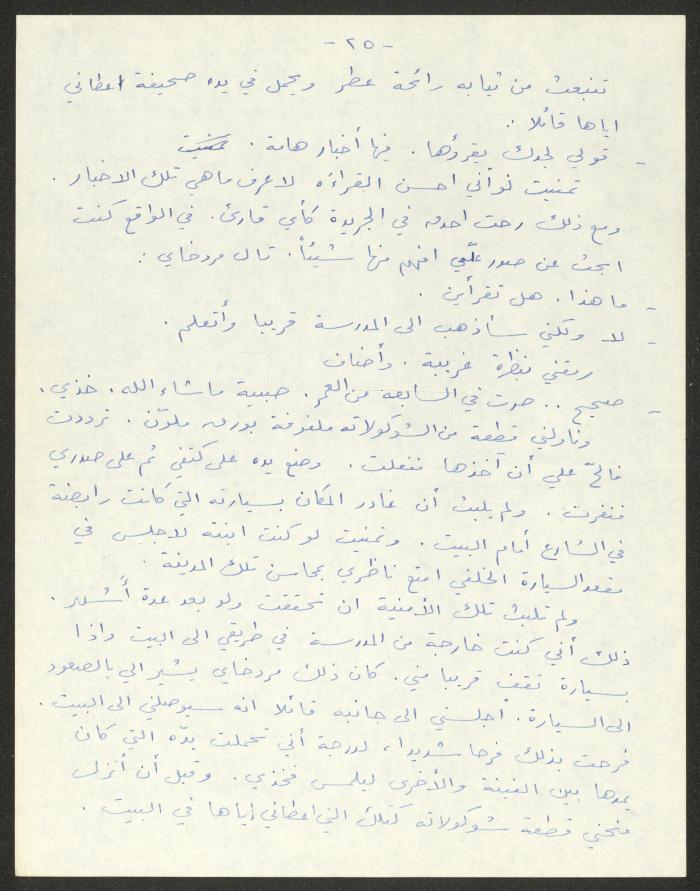 - ٢٥ -
تنبعث من ثيابه رائحة عطر ويحمل في يده صحيفة اعطاني
اياها قائلا :
- قولي لجدك يقرؤها. فيها أخبار هامة.
تمنيت لو أني احسن القراءه لاعرف ماهي تلك الاخبار.
ومع ذلك رحت احدق في الجريدة كأي قارئ. في الواقع كنت
ابحث عن صور علّي افهم منها شيئاً. قال مردخاي :
- ما هذا. هل تقرأين.
- لا ولكني سأذهب الى المدرسة قريبا وأتعلم.
رمقني بنظرة غريبة. وأضاف
- صحيح .. صرت في السابعه من العمر. صبية ماشاء الله. خذي.
وناولني قطعة من الشوكولاته ملفوفة بورق ملوّن. ترددت
فالحّ علي أن آخذها ففعلت. وضع يده على كتفي ثم على صدري
فنفرت. ولم يلبث أن غادر المكان بسيارته التي كانت رابضة
في الشارع أمام البيت. وتمنيت لو كنت ابنته لاجلس في
مقعد السيارة الخلفي امتع ناظري بمحاسن تلك المدينة.
ولم تلبث تلك الأمنية ان تحققت ولو بعد عدة أشهر.
ذلك أني كنت خارجة من المدرسة في طريقي الى البيت واذا
بسيارة تقف قريبا مني. كان ذلك مردخاي يشير الي بالصعود
الى السيارة. أجلسني الى جانبه قائلا انه سيوصلني الى البيت.
فرحت بذلك فرحا شديدا، لدرجة أني تحملت يدّه التي كان
يمدها بين الفينة والأخرى ليلمس فخذي. وقبل أن أنزل
منحني قطعة شوكولاته كتلك التي اعطاني إياها في البيت.